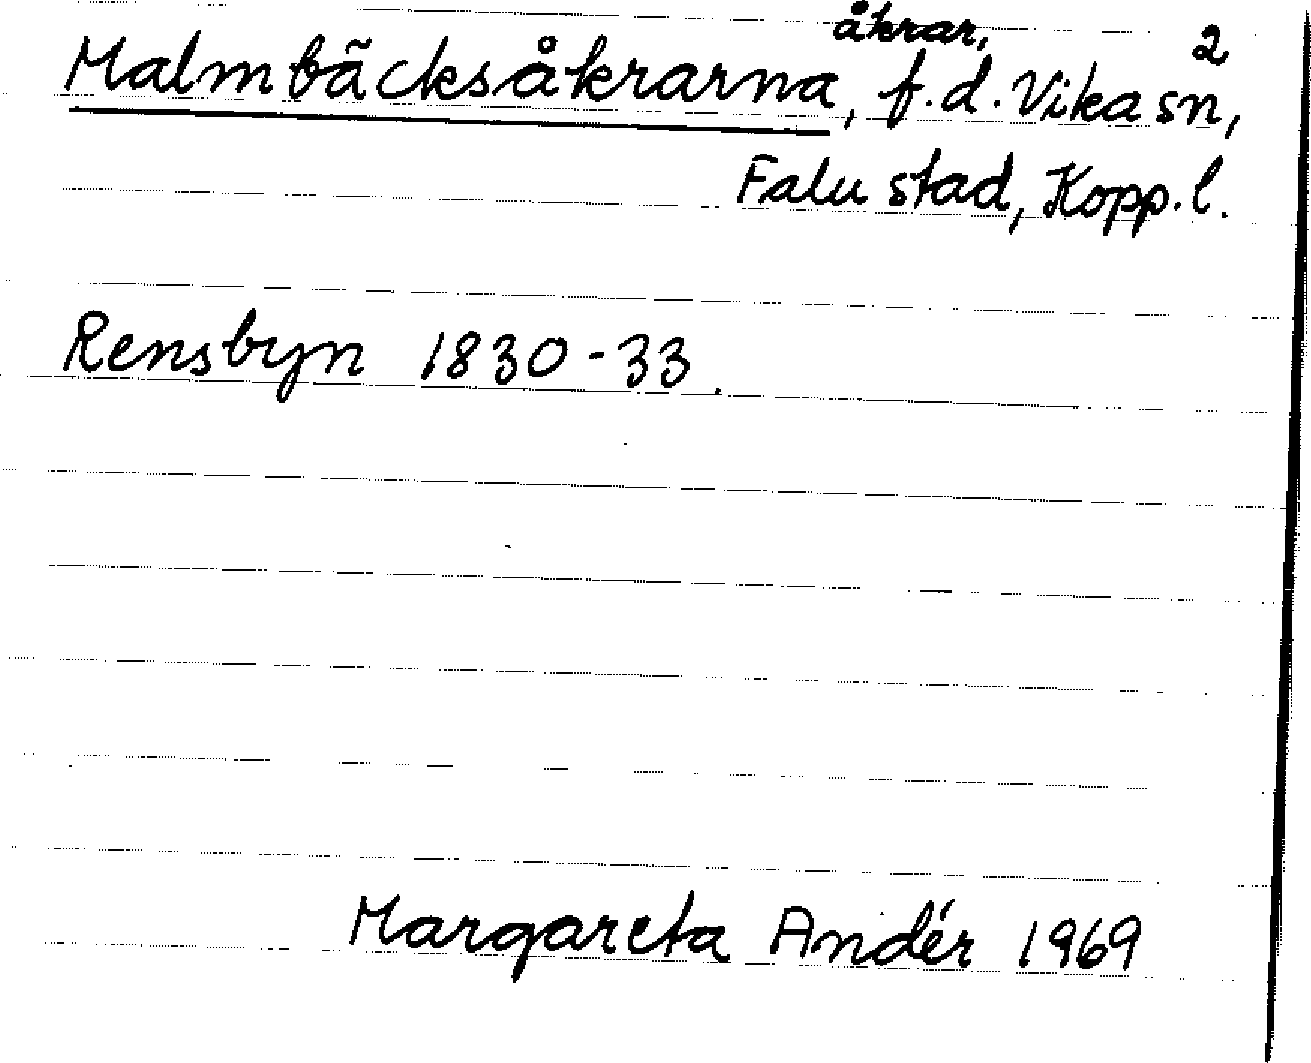 åkrar, 2
Malmbäcksåkrarna, f.d. Vika sn,
Falu stad, Kopp.l.
Rensbyn 1830-33.
Margareta Andér 1969